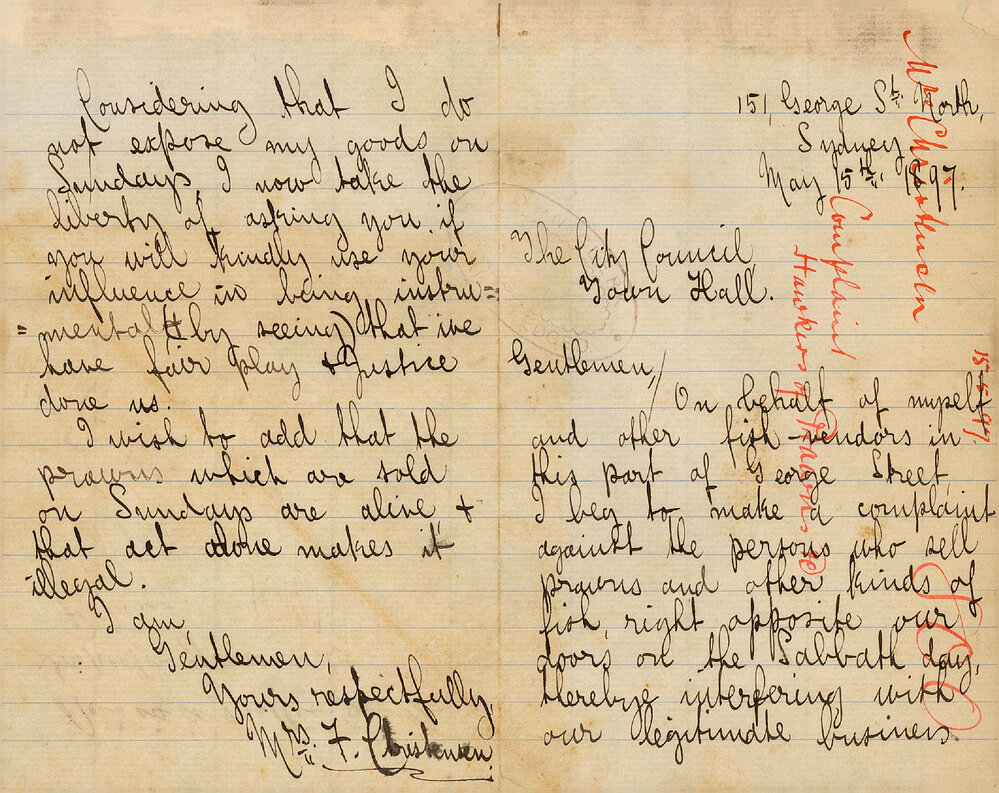 151, George St. North,
Sydney.
May 15th. 1897.
The City Council,
Town Hall.
Gentlemen,/
On behalf of myself
and other fish-vendors in
this part of George Street,
I beg to make a complaint
against the persons who sell
prawns and other kinds of
fish, right opposite our
doors on the Sabbath day,
therebye interfering with
our legitimate business.
Considering that I do
not expose my goods on
Sundays, I now take the
liberty of asking you if
you will kindly use your
influence in being instru=
=mental (by seeing) that we
have fair play & Justice
done us.
I wish to add that the
prawns which are sold
on Sundays are alive, +
that act alone makes it
illegal.
I am,
Gentlemen,
Yours respectfully,
Mrs. F. Christensen.
Mrs Christensen
Complaint
Hawkers of Prawns &c
15-5-97